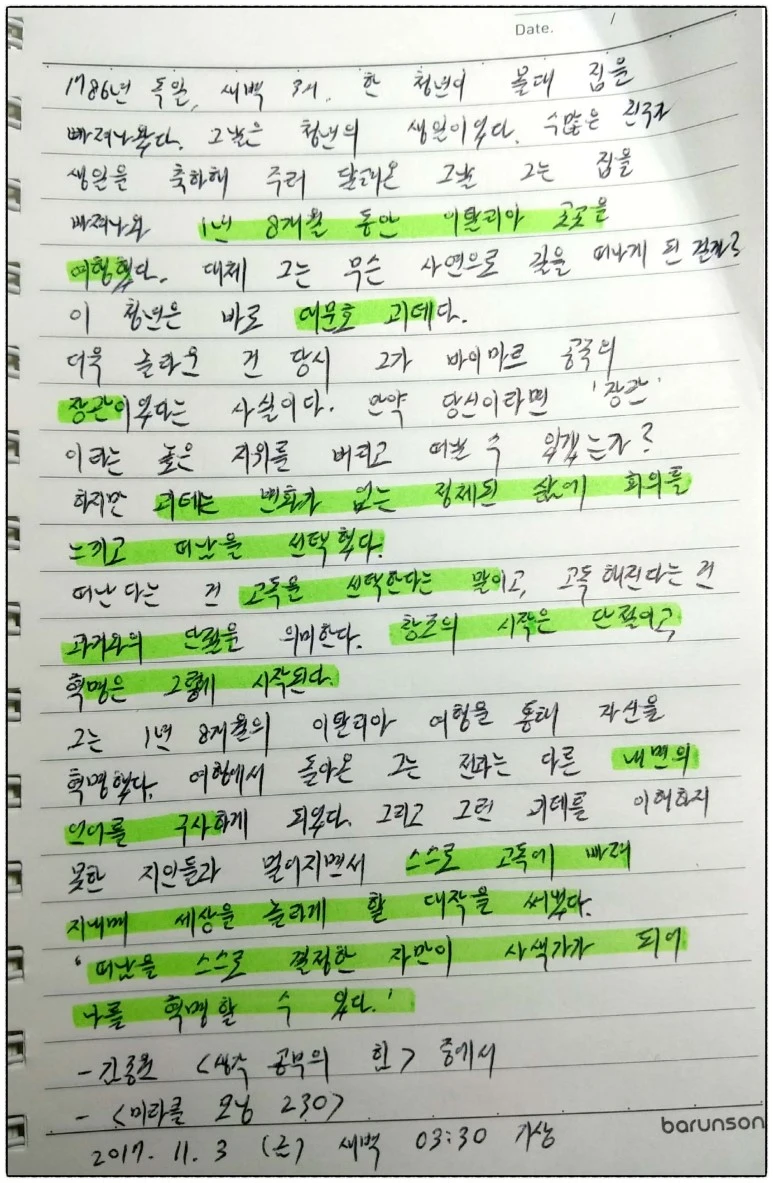 Date. /
1786년 독일, 새벽 3시. 한 청년이 몰래 집을
빠져나왔다. 그날은 청년의 생일이었다. 수많은 친구가
생일을 축하해 주러 달려온 그날 그는 집을
빠져나와 1년 8개월 동안 이탈리아 곳곳을
여행했다. 대체 그는 무슨 사연으로 길을 떠나게 된 걸까?
이 청년은 바로 대문호 괴테다.
더욱 놀라운 건 당시 그가 바이마르 공국의
장관이었다는 사실이다. 만약 당신이라면 '장관'
이라는 높은 지위를 버리고 떠날 수 있겠는가?
하지만 괴테는 변화가 없는 정체된 삶에 회의를
느끼고 떠남을 선택했다.
떠난다는 건 고독을 선택한다는 말이고, 고독해진다는 건
과거와의 단절을 의미한다. 창조의 시작은 단절이고,
혁명은 그렇게 시작된다.
그는 1년 8개월의 이탈리아 여행을 통해 자신을
혁명했다. 여행에서 돌아온 그는 전과는 다른 내면의
언어를 구사하게 되었다. 그리고 그런 괴테를 이해하지
못한 지인들과 멀어지면서 스스로 고독에 빠져
지내며 세상을 놀라게 할 대작을 써냈다.
'떠남을 스스로 결정한 자만이 사색가가 되어
나를 혁명할 수 있다.'
- 김종원 <생각 공부의 힘> 중에서
- <미라클 모닝 230>
2017. 11. 3 (금) 새벽 03:30 기상
barunson